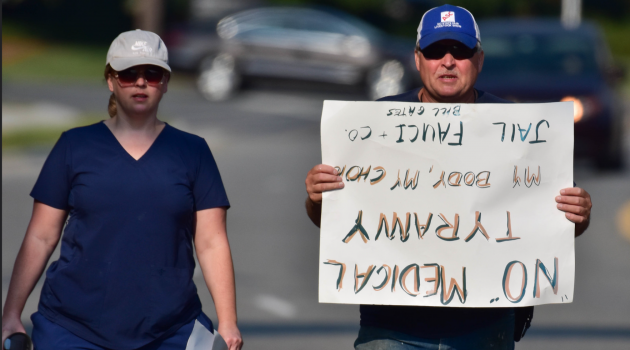 "NO" MEDICAL
TYRANNY
MY BODY, MY CHO
JAIL FAUCI + CO.
BILL GATES